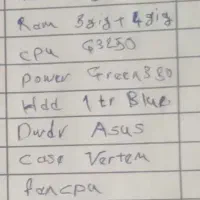 Ram 3gig + 4gig
cpu G3250
power Green 380
Hdd 1 tr Blue
Dwdr Asus
Case Vertem
fancpu